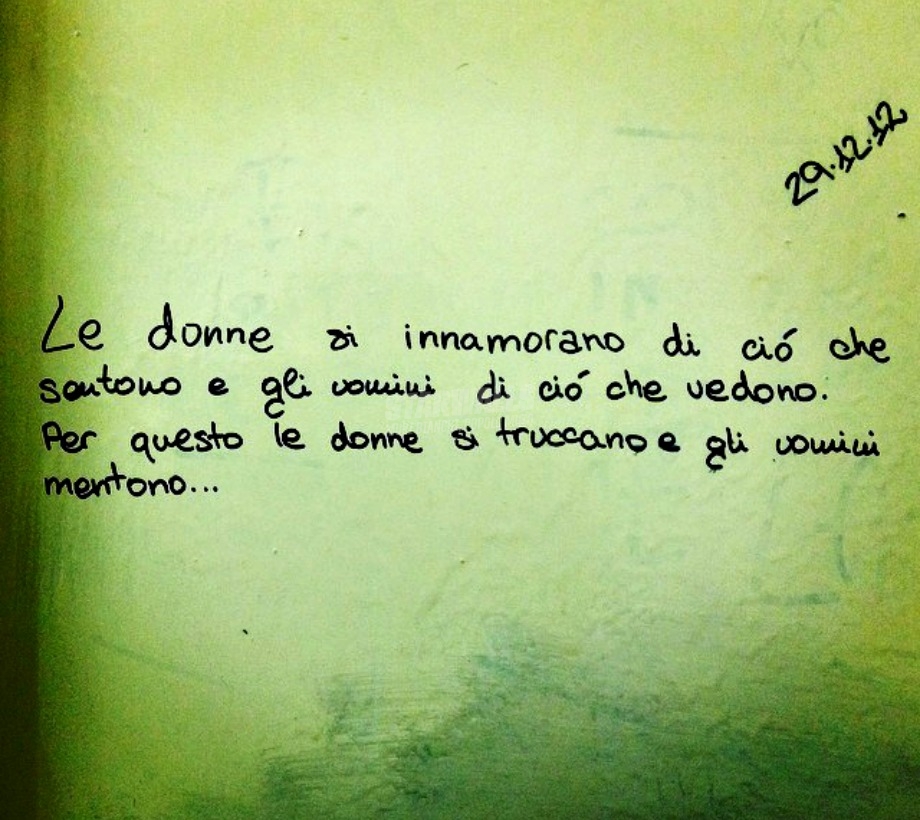 29.12.12
Le donne si innamorano di ció che
sentono e gli uomini di ció che vedono.
Per questo le donne si truccano e gli uomini
mentono...